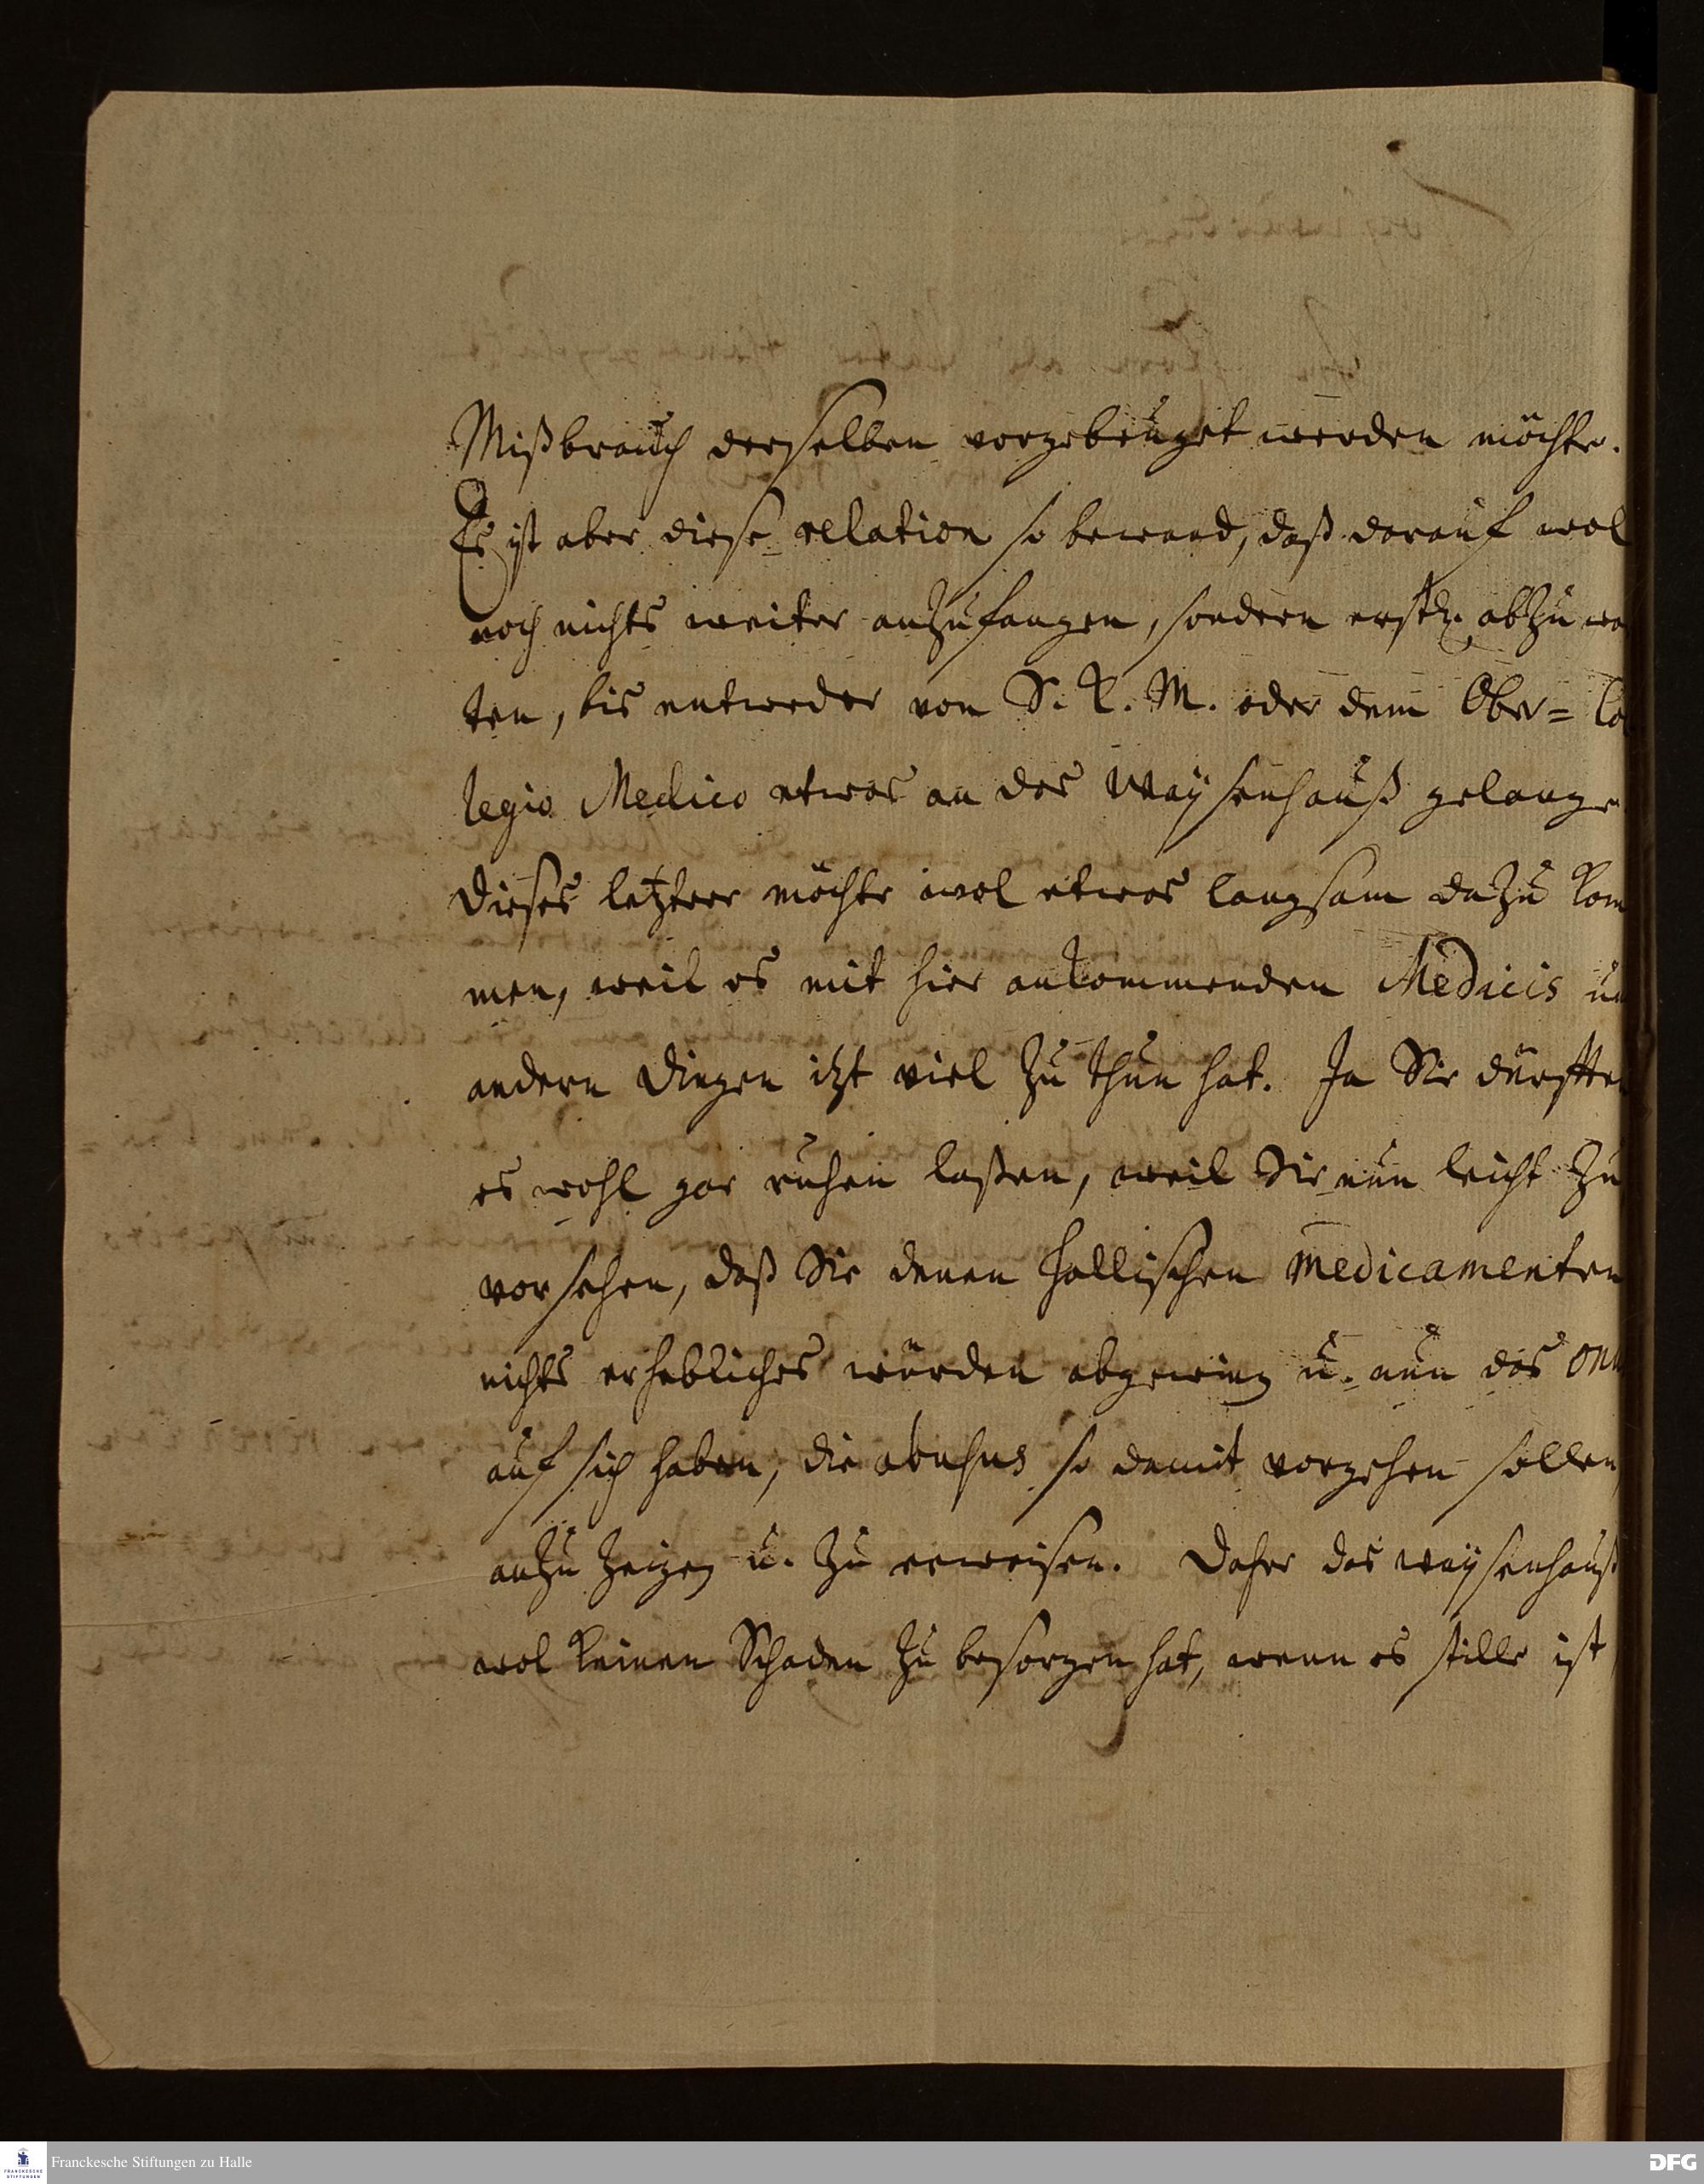 Mißbrauch derselben vorgebeuget werden möchte.
Es ist aber diese relation so bewand, daß darauf wol
noch nichts weiter anzufangen, sondern erstl. abzuwa
ten, bis entweder von S. K. M. oder dem Ober= Co
legio Medico etwas an das Waysenhauß gelange
Dieses letztere möchte wol etwas langsam dazu kom
men, weil es mit hier ankommenden Medicis un
andern Dingen itzt viel zu thun hat. Ja Sie dürffte
es wohl gar ruhen laßen, weil Sie nun leicht zu
vor sehen, daß Sie denen Hallischen Medicamenten
nichts erhebliches würden abgewing u. nun das on
auf sich haben, die abusus so damit vorgehen sollen
anzu zeigen u. zu erweisen. Daher das Waysenhauß
wol keinen Schaden zu besorgen hat, wenn es stille ist
Franckesche Stiftungen zu Halle
FRANCKESCHE STIFTUNGEN
DFG